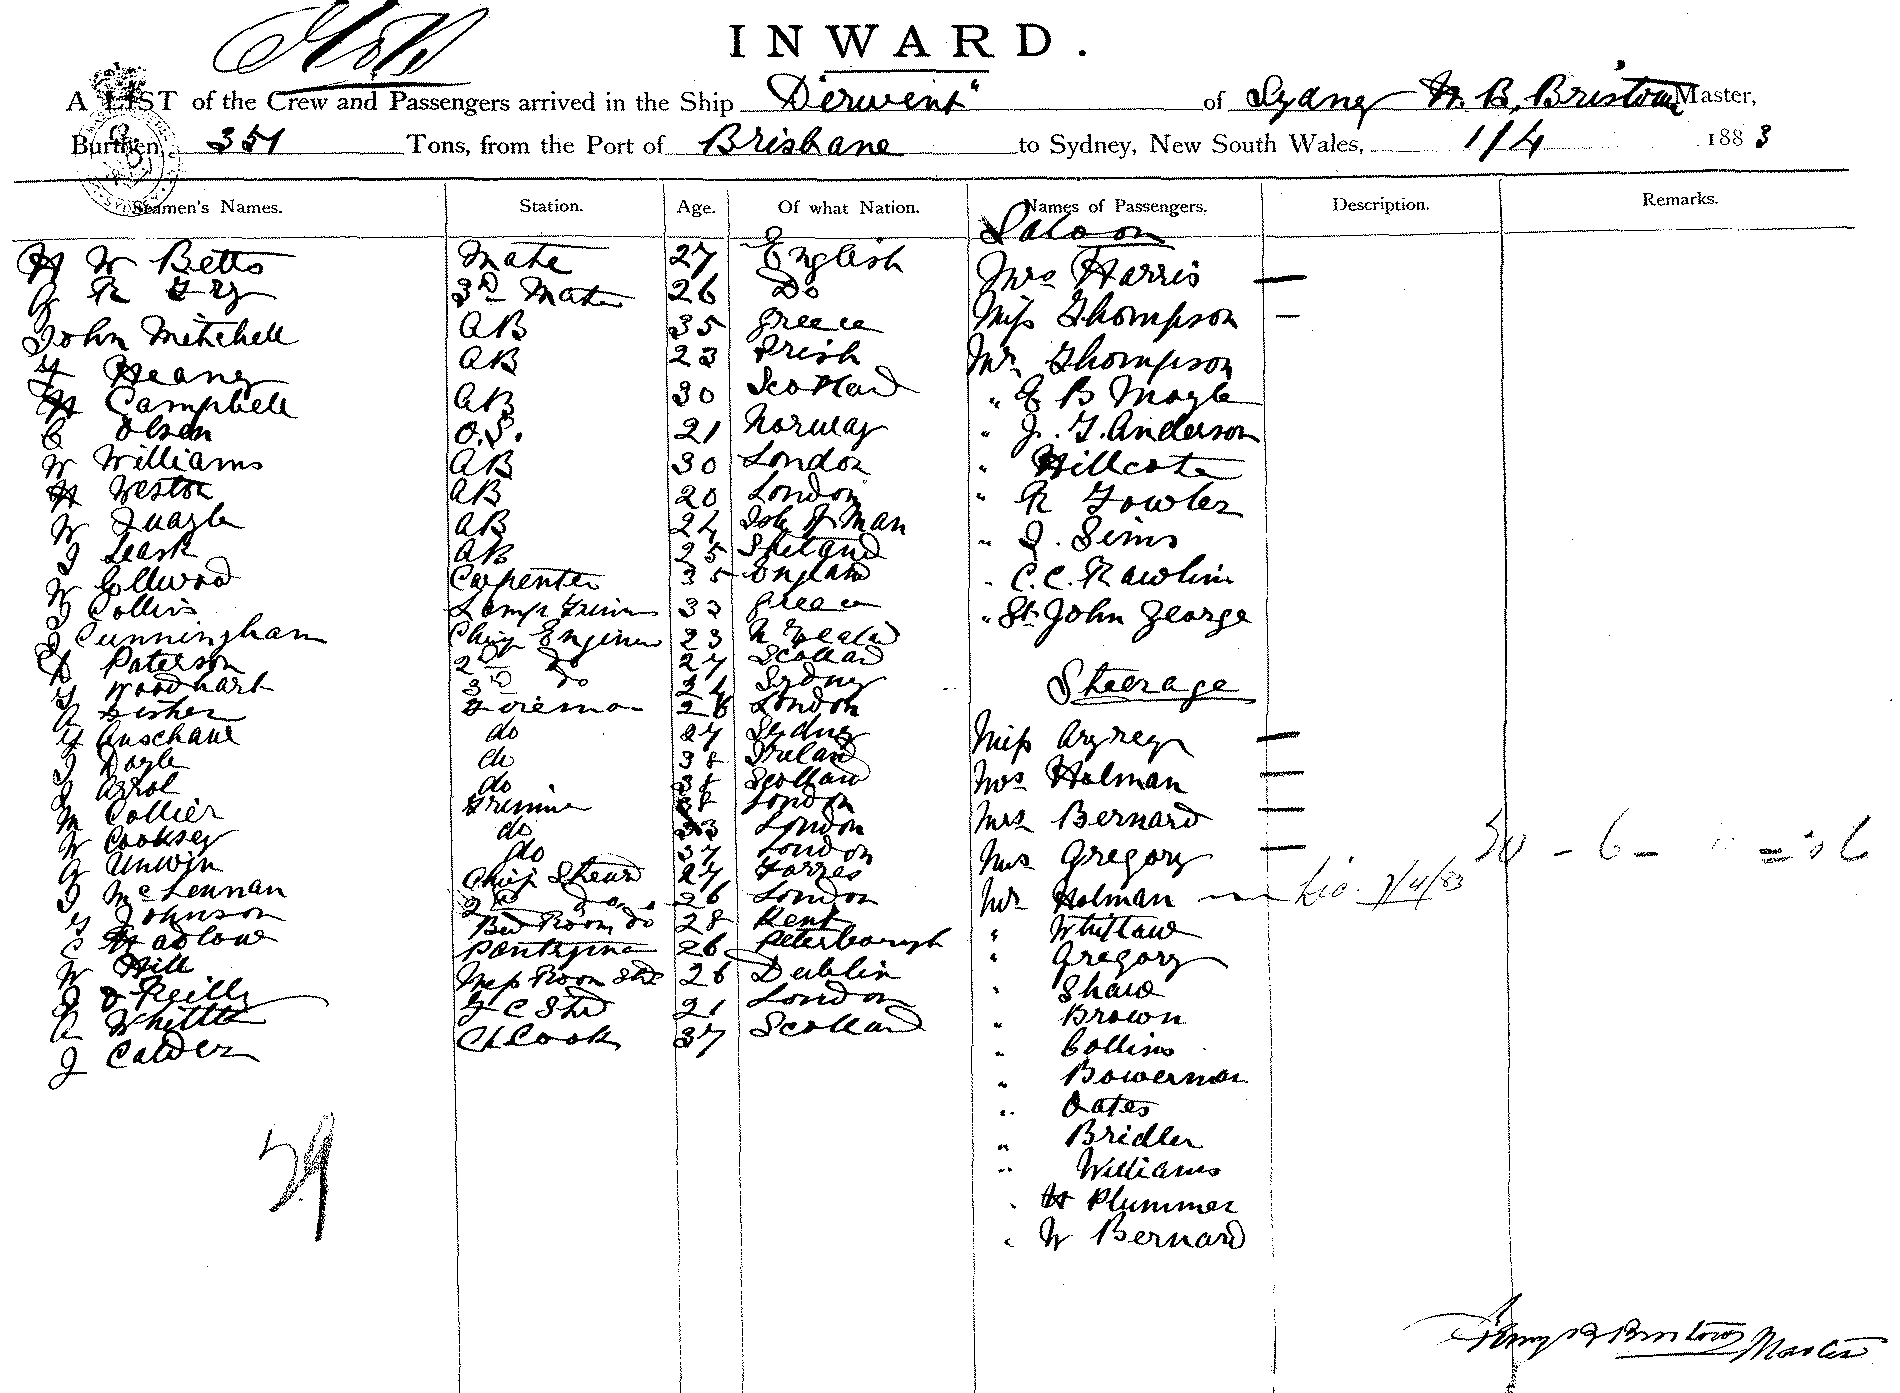 INWARD.
A LIST of the Crew and Passengers arrived in the Ship "Derwent" of Sydney H. B. Bristow Master,
Burthen 351 Tons, from the Port of Brisbane to Sydney, New South Wales, 1/4 1883
Seamen's Names. Station. Age. Of what Nation. Names of Passengers. Description. Remarks.
Saloon
H W Betts Mate 27 English Mrs Harris —
G R Fry 3rd Mate 26 Do Miss Thompson —
John Mitchell AB 35 Greece Mr Thompson
Heaney AB 23 Irish " E B Moyle
H Campbell AB 30 Scotland " J. T. Anderson
C Olsen O.S. 21 Norway " Hillcote
W Williams AB 30 London " R Fowler
H Weston AB 20 London " J. Sims
W Quayle AB 24 Isle of Man " C. C. Rawlin
J Leask AB 25 Shetland " St. John George
W Ellwood Carpenter 35 England
J Collins Lamp Trimr 33 Greece
J Cunningham Chief Engineer 23 N Zeald
Paterson 2nd do 27 Scotland Steerage
Woodhart 3rd do 24 Sydney
Fisher Foreman 28 London
do 27 Sydney Miss —
J Doyle do 38 Ireland Mrs Holman —
J do 38 Scotland Mrs Bernard —
M Collier Trimmer 38 London Mrs Gregory —
W Cooksey do 33 London Mr Holman — 7/4/83
G Unwin do 37 London " Whittaw
J McLennan Chief Steward 27 Forres " Gregory
Johnson 2nd do 26 London " Shaw
C Hadlow Bed Room do 28 Kent " Brown
W Hill Pantryman 26 Peterborough " Collins
J O'Reilly Mess Room Std 26 Dublin " Bowerman
A Whittle F C Std 21 London " Oates
J Calder Ch Cook 37 Scotland " Bridler
" Williams
" H Plummer
" W Bernard
29
Henry B Bristow Master